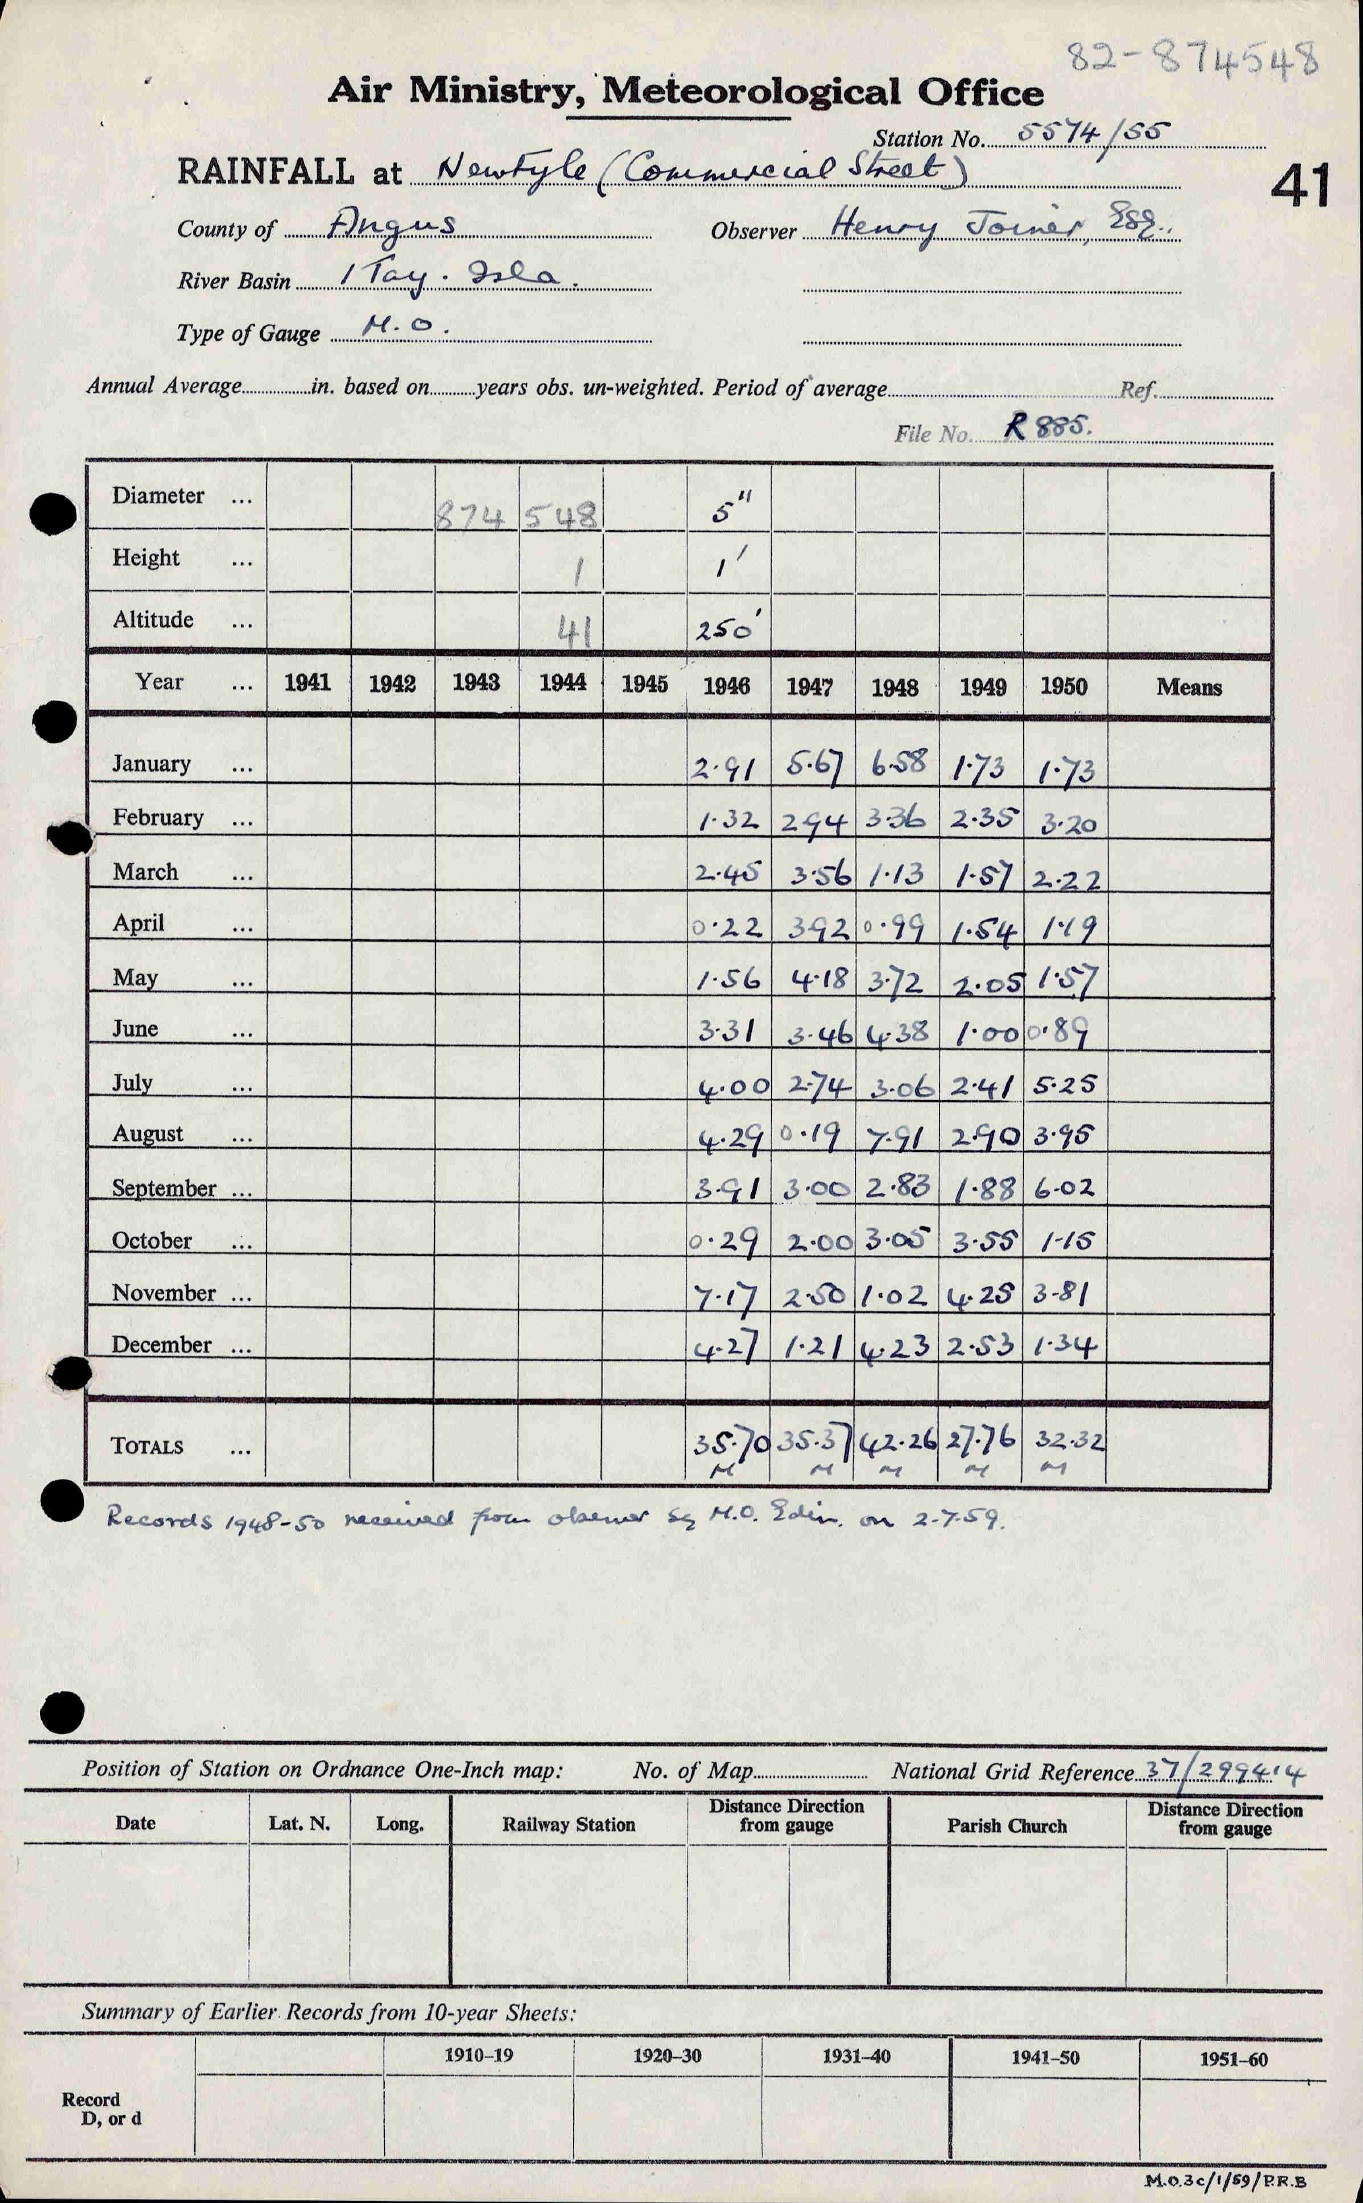 82-874548
Air Ministry, Meteorological Office
Station No. 5574/55
RAINFALL at Newtyle (Commercial Street)
41
County of Angus Observer Henry Joiner, Esq.
River Basin 1 Tay. Isla.
Type of Gauge M.O.
Annual Average in. based on years obs. un-weighted. Period of average Ref.
File No. R 885.
Diameter ... 874 548 5"
Height ... 1 1'
Altitude ... 41 250'
Year ... 1941 1942 1943 1944 1945 1946 1947 1948 1949 1950 Means
January ... 2.91 5.67 6.58 1.73 1.73
February ... 1.32 2.94 3.36 2.35 3.20
March ... 2.45 3.56 1.13 1.57 2.22
April ... 0.22 3.92 0.99 1.54 1.19
May ... 1.56 4.18 3.72 2.05 1.57
June ... 3.31 3.46 4.38 1.00 0.89
July ... 4.00 2.74 3.06 2.41 5.25
August ... 4.29 0.19 7.91 2.90 3.95
September ... 3.91 3.00 2.83 1.88 6.02
October ... 0.29 2.00 3.05 3.55 1.15
November ... 7.17 2.50 1.02 4.25 3.81
December ... 4.27 1.21 4.23 2.53 1.34
TOTALS ... 35.70 35.37 42.26 27.76 32.32
M M M M M
Records 1948-50 received from observer by M.O. Edin. on 2.7.59.
Position of Station on Ordnance One-Inch map: No. of Map National Grid Reference 37/299414
Date Lat. N. Long. Railway Station Distance Direction from gauge Parish Church Distance Direction from gauge
Summary of Earlier Records from 10-year Sheets:
1910–19 1920–30 1931–40 1941–50 1951–60
Record
D, or d
M.O.3c/1/59/P.R.B